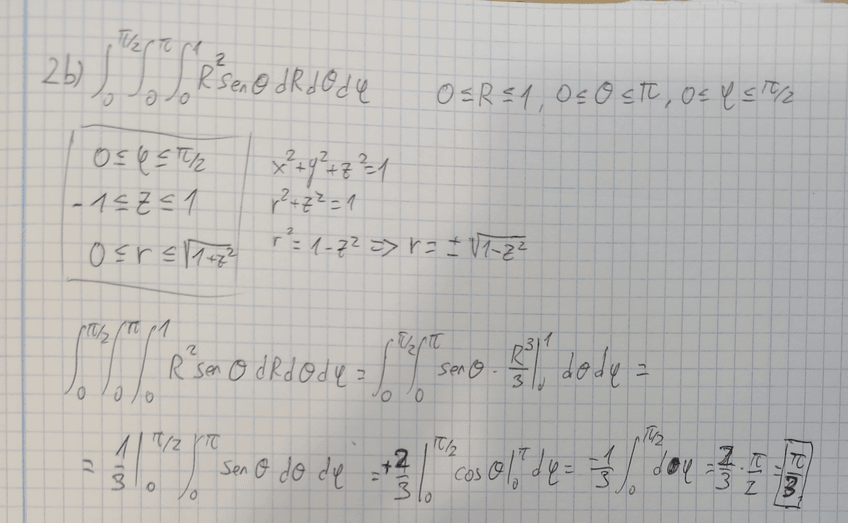 2b) ∫₀^{π/2} ∫₀^π ∫₀^1 R² sen θ dR dθ dφ   0 ≤ R ≤ 1, 0 ≤ θ ≤ π, 0 ≤ φ ≤ π/2
0 ≤ φ ≤ π/2   x² + y² + z² = 1
-1 ≤ z ≤ 1   r² + z² = 1
0 ≤ r ≤ √(1+z²)   r² = 1 - z² => r = ± √(1-z²)
∫₀^{π/2} ∫₀^π ∫₀^1 R² sen θ dR dθ dφ = ∫₀^{π/2} ∫₀^π sen θ · R³/3 |₀^1 dθ dφ =
= 1/3 |₀^{π/2} ∫₀^π sen θ dθ dφ = +2/3 |₀^{π/2} cos θ |₀^π dφ = -1/3 ∫₀^{π/2} dφ = 2/3 · π/2 = π/3